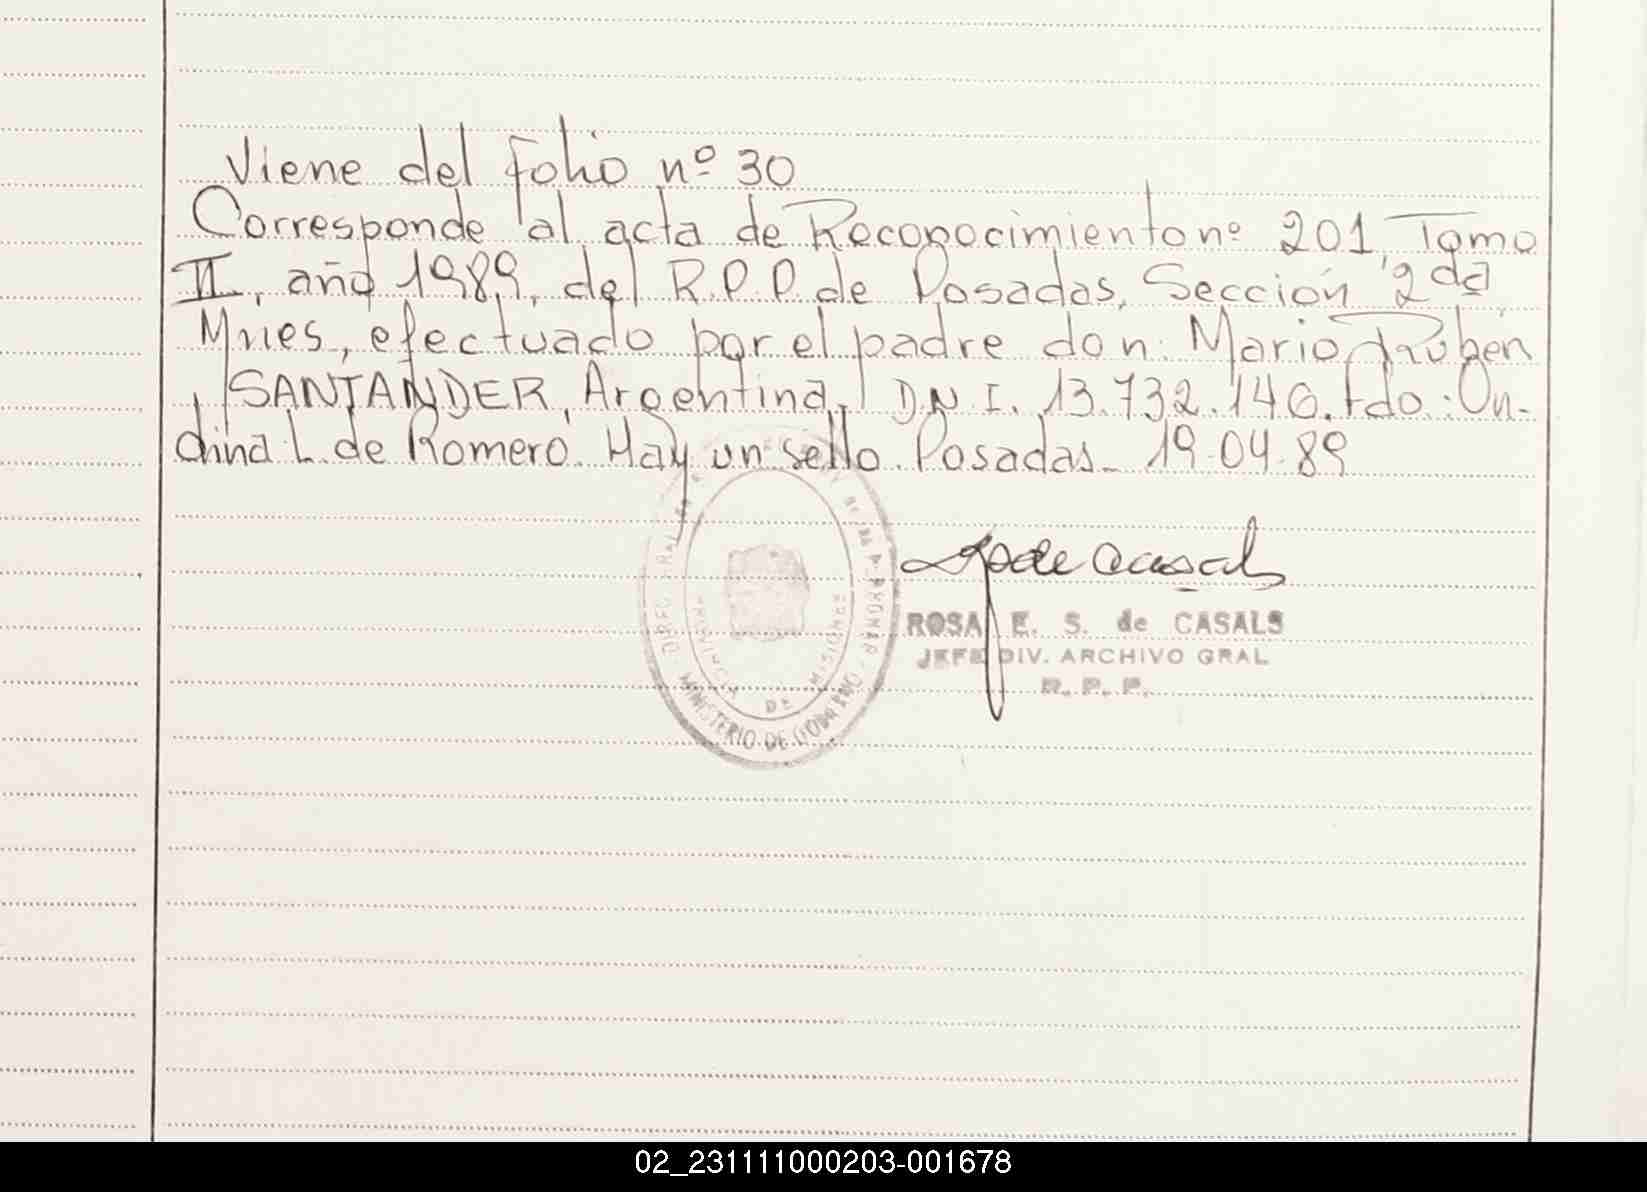 Viene del folio nº 30
Corresponde al acta de Reconocimiento nº 201, Tomo
II, año 1989, del R.P.P. de Posadas, Sección 2da
Mnes, efectuado por el padre don: Mario Rubén
SANTANDER, Argentina, D.N.I. 13.732.146. Fdo: On-
dina L. de Romero. Hay un sello. Posadas- 19-04-89
de Casals
ROSA E. S. de CASALS
JEFE DIV. ARCHIVO GRAL
R. P. P.
PROVINCIA DE MISIONES
MINISTERIO DE GOBIERNO
02_231111000203-001678